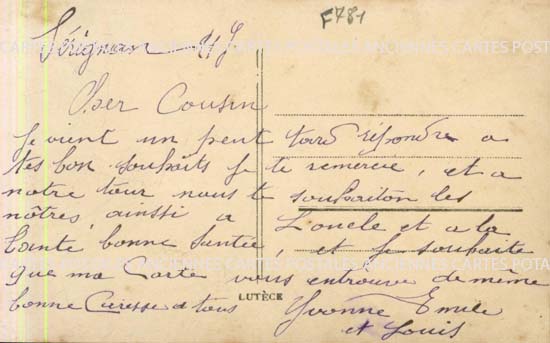 F781
Sérignan
Cher Cousin
Je vient un peut tard répondre a
tes bon souhaits je te remercie, et a
notre tour nous te souhaiton les
nôtres, ainssi a L'oncle et a la
tante, bonne Santée, et je souhaite
que ma Carte vous entrouve de même
bonne Caresse a tous Yvonne Emile
et Louis
LUTÈCE
CARTES POSTALES ANCIENNES CARTES POSTALES